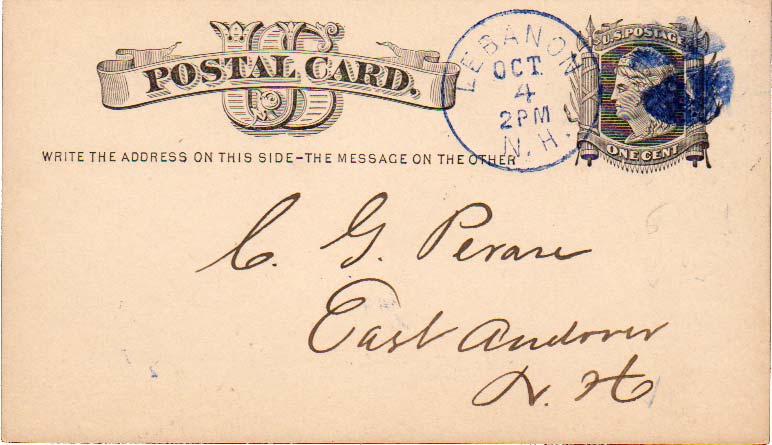 US
POSTAL CARD.
LEBANON
OCT.
4
2 PM
N.H.
U.S. POSTAGE
ONE CENT
WRITE THE ADDRESS ON THIS SIDE–THE MESSAGE ON THE OTHER
C. G. Pevare
East Andover
N. H